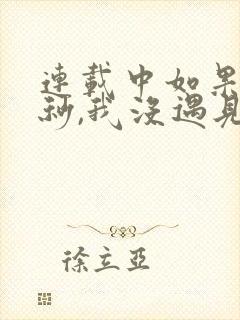 連載中如果
秒,我沒遇見
徐立亞